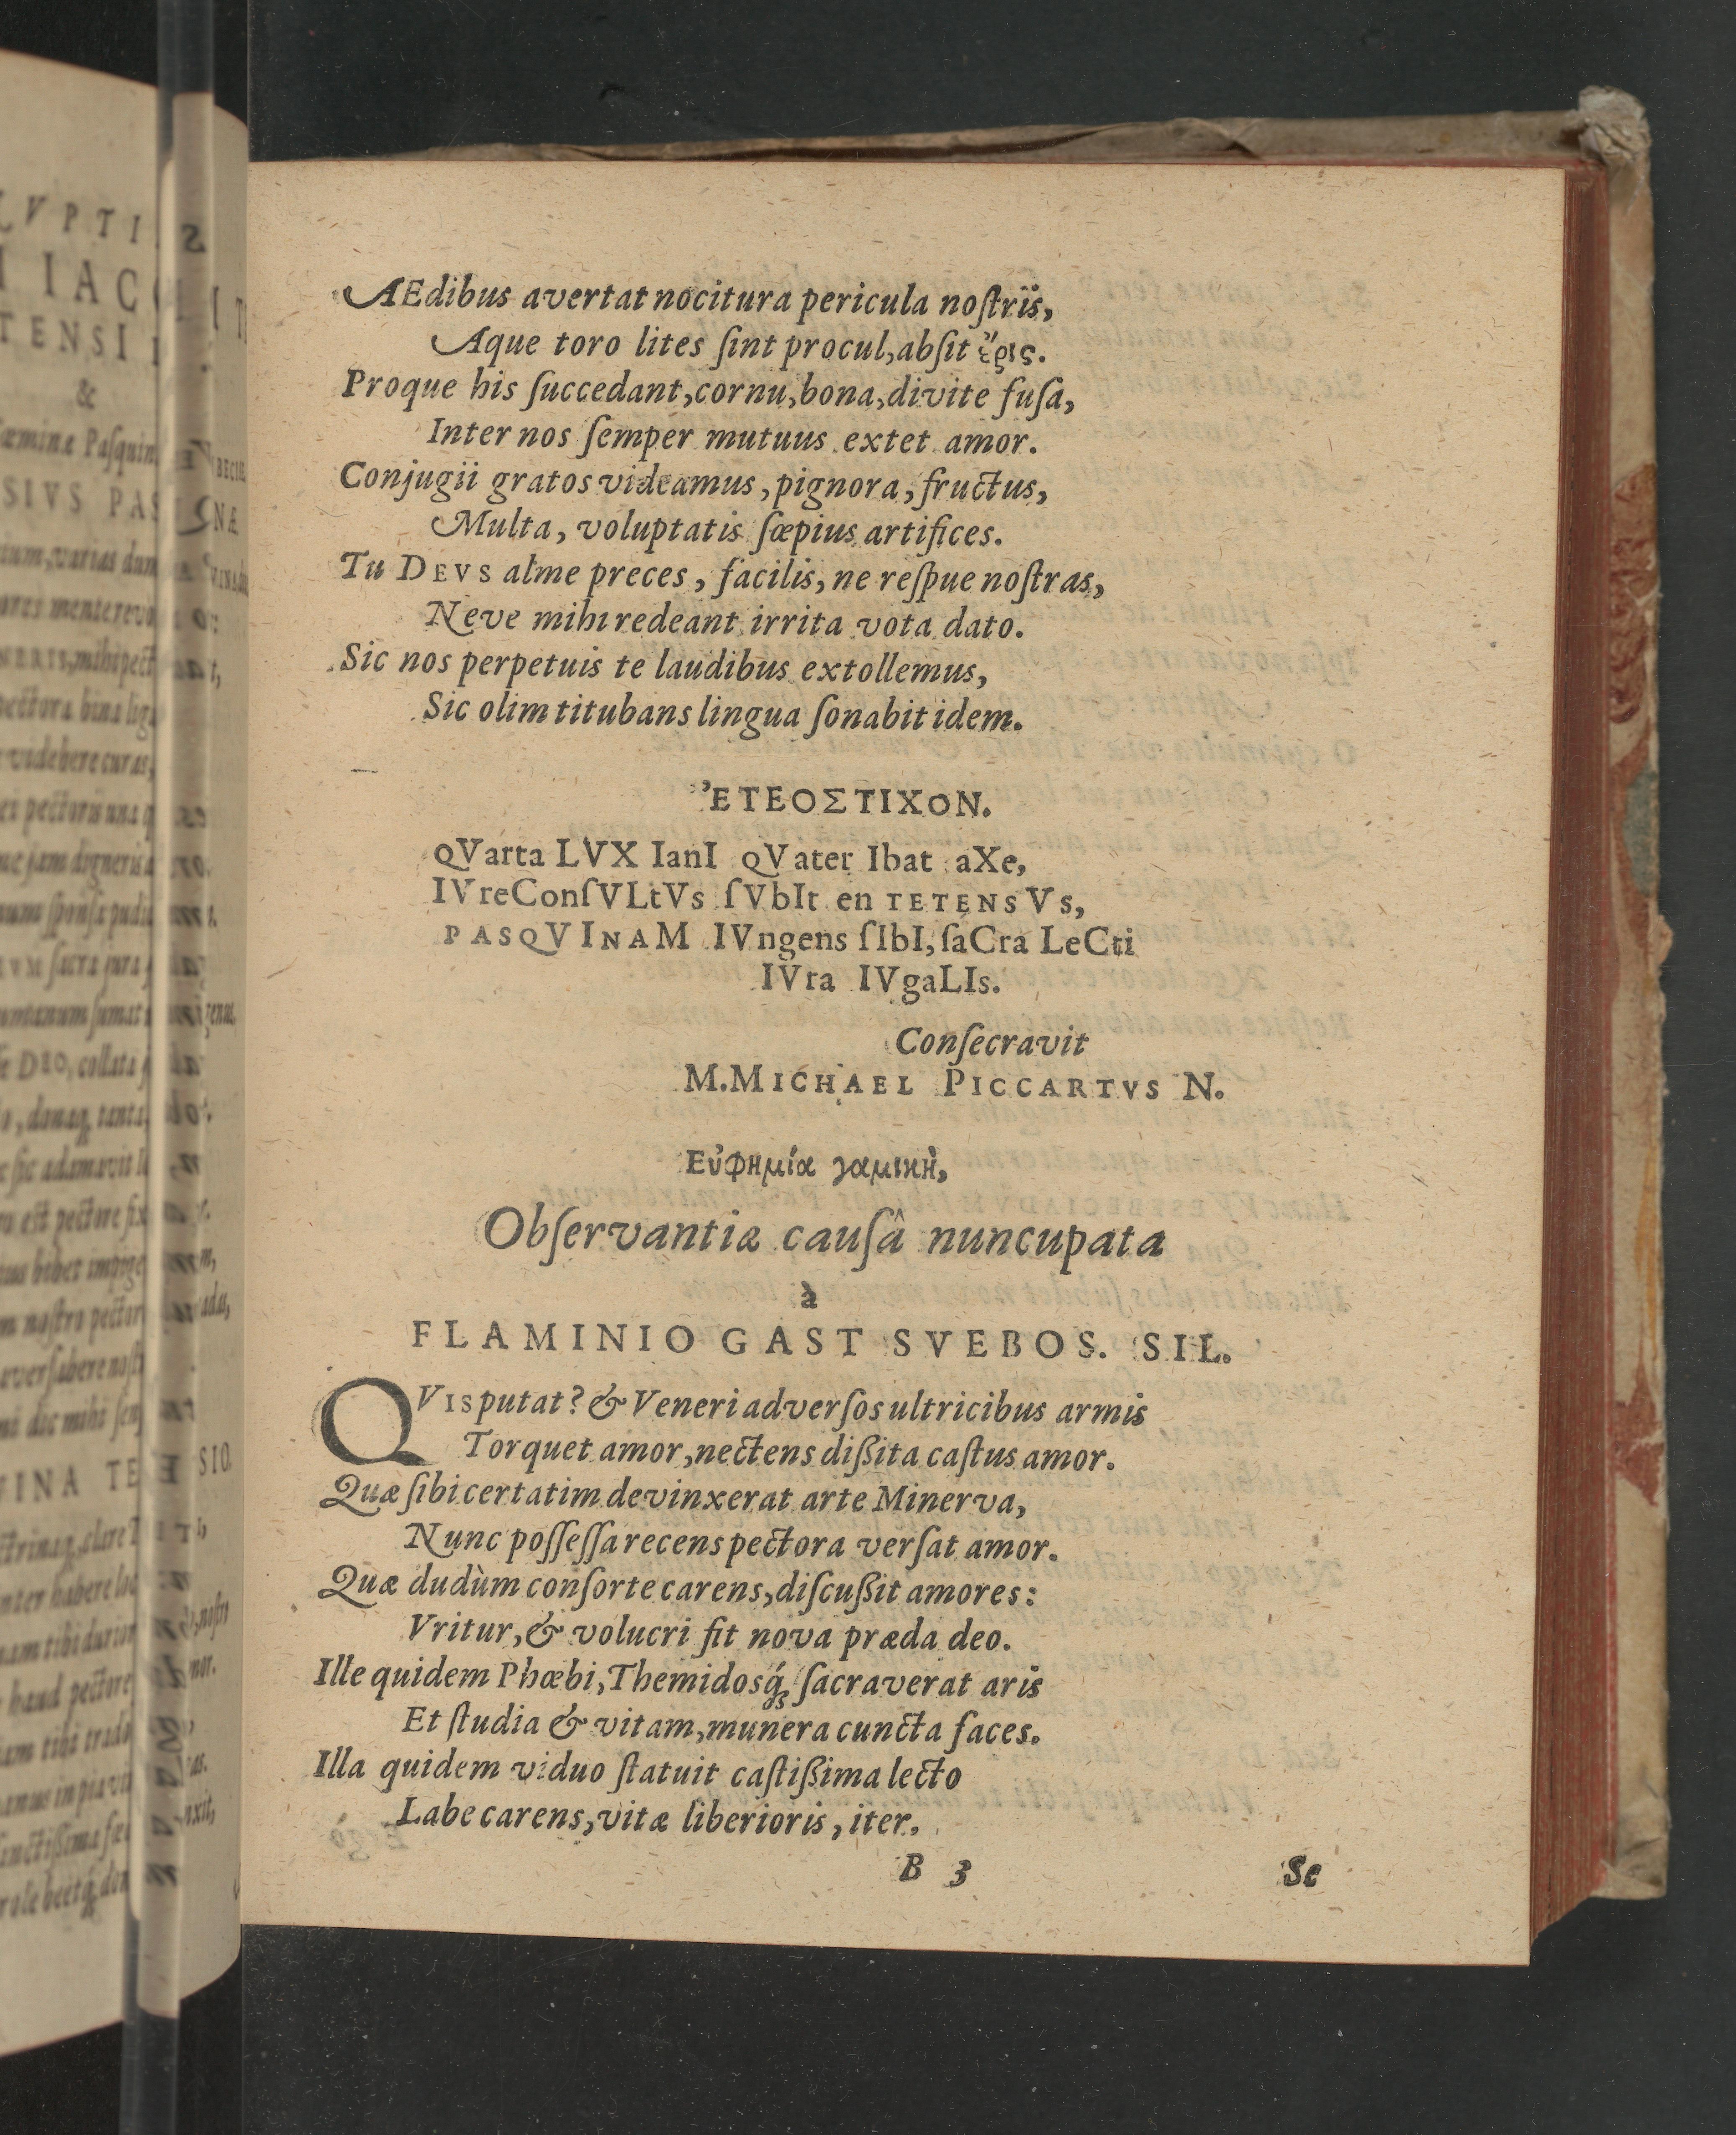 AEdibus avertat nocitura pericula noſtris,
Aque toro lites ſint procul, abſit ἔρις.
Proque his ſuccedant, cornu, bona, divite fuſa,
Inter nos ſemper mutuus extet amor.
Conjugii gratos videamus, pignora, fructus,
Multa, voluptatis ſœpius artifices.
Tu DEVS alme preces, facilis, ne reſpue noſtras,
Neve mihi redeant irrita vota dato.
Sic nos perpetuis te laudibus extollemus,
Sic olim titubans lingua ſonabit idem.
ἘΤΕΟΣΤΙΧΟΝ.
QVarta LVX IanI QVater Ibat aXe,
IVreConſVLtVs ſVbIt en TETENSVs,
PASQVINAM IVngens ſIbI, ſaCra LeCti
IVra IVgaLIs.
Conſecravit
M. MICHAEL PICCARTVS N.
Εὐφημία γαμικὴ,
Obſervantiæ cauſâ nuncupata
à
FLAMINIO GAST SVEBOS. SIL.
QVIS putat? & Veneri adverſos ultricibus armis
Torquet amor, nectens diſsita caſtus amor.
Quæ ſibi certatim devinxerat arte Minerva,
Nunc poſſeſſa recens pectora verſat amor.
Quæ dudùm conſorte carens, diſcuſsit amores:
Vritur, & volucri fit nova præda deo.
Ille quidem Phœbi, Themidosq́; ſacraverat aris
Et ſtudia & vitam, munera cuncta faces.
Illa quidem viduo ſtatuit caſtiſsima lecto
Labe carens, vitæ liberioris, iter.
B 3
Se